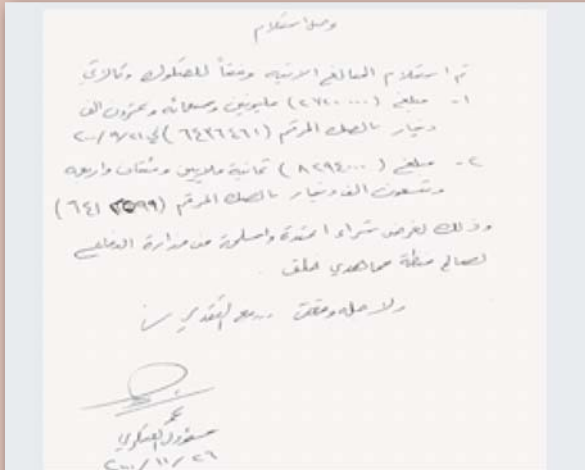 وصل استلام
تم استلام المبالغ الاتية وفقاً للصكوك وكالاتي
١- مبلغ (٢٧٢٠٠٠٠) مليونين وسبعمائه وعشرون الف
دينار بالصك المرقم (٦٤٣٦٤٦١) في ٢٠٠٠/٩/٢١
٢- مبلغ (٨٢٩٤٠٠٠) ثمانية ملايين ومئتان واربعه
وتسعون الف دينار بالصك المرقم (٦٤١٣٥٩٩)
وذلك لغرض شراء اعتدة واسلحة من وزارة الدفاع
لصالح منظمة مجاهدي خلق
ولاجله وقعت مع التقدير
مسؤول العسكري
٢٠٠٠/١١/٢٦